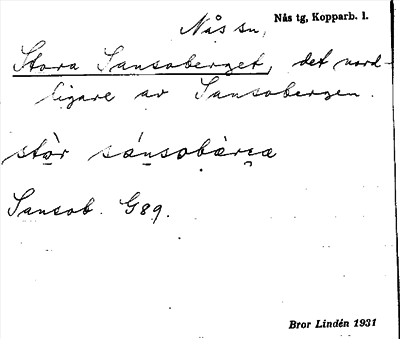 Nås tg, Kopparb. l.
Nås sn,
Stora Sansoberget, det nord-
ligare av Sansobergen.
stò̱r sánsobàrɛa
Sansob. G89.
Bror Lindén 1931